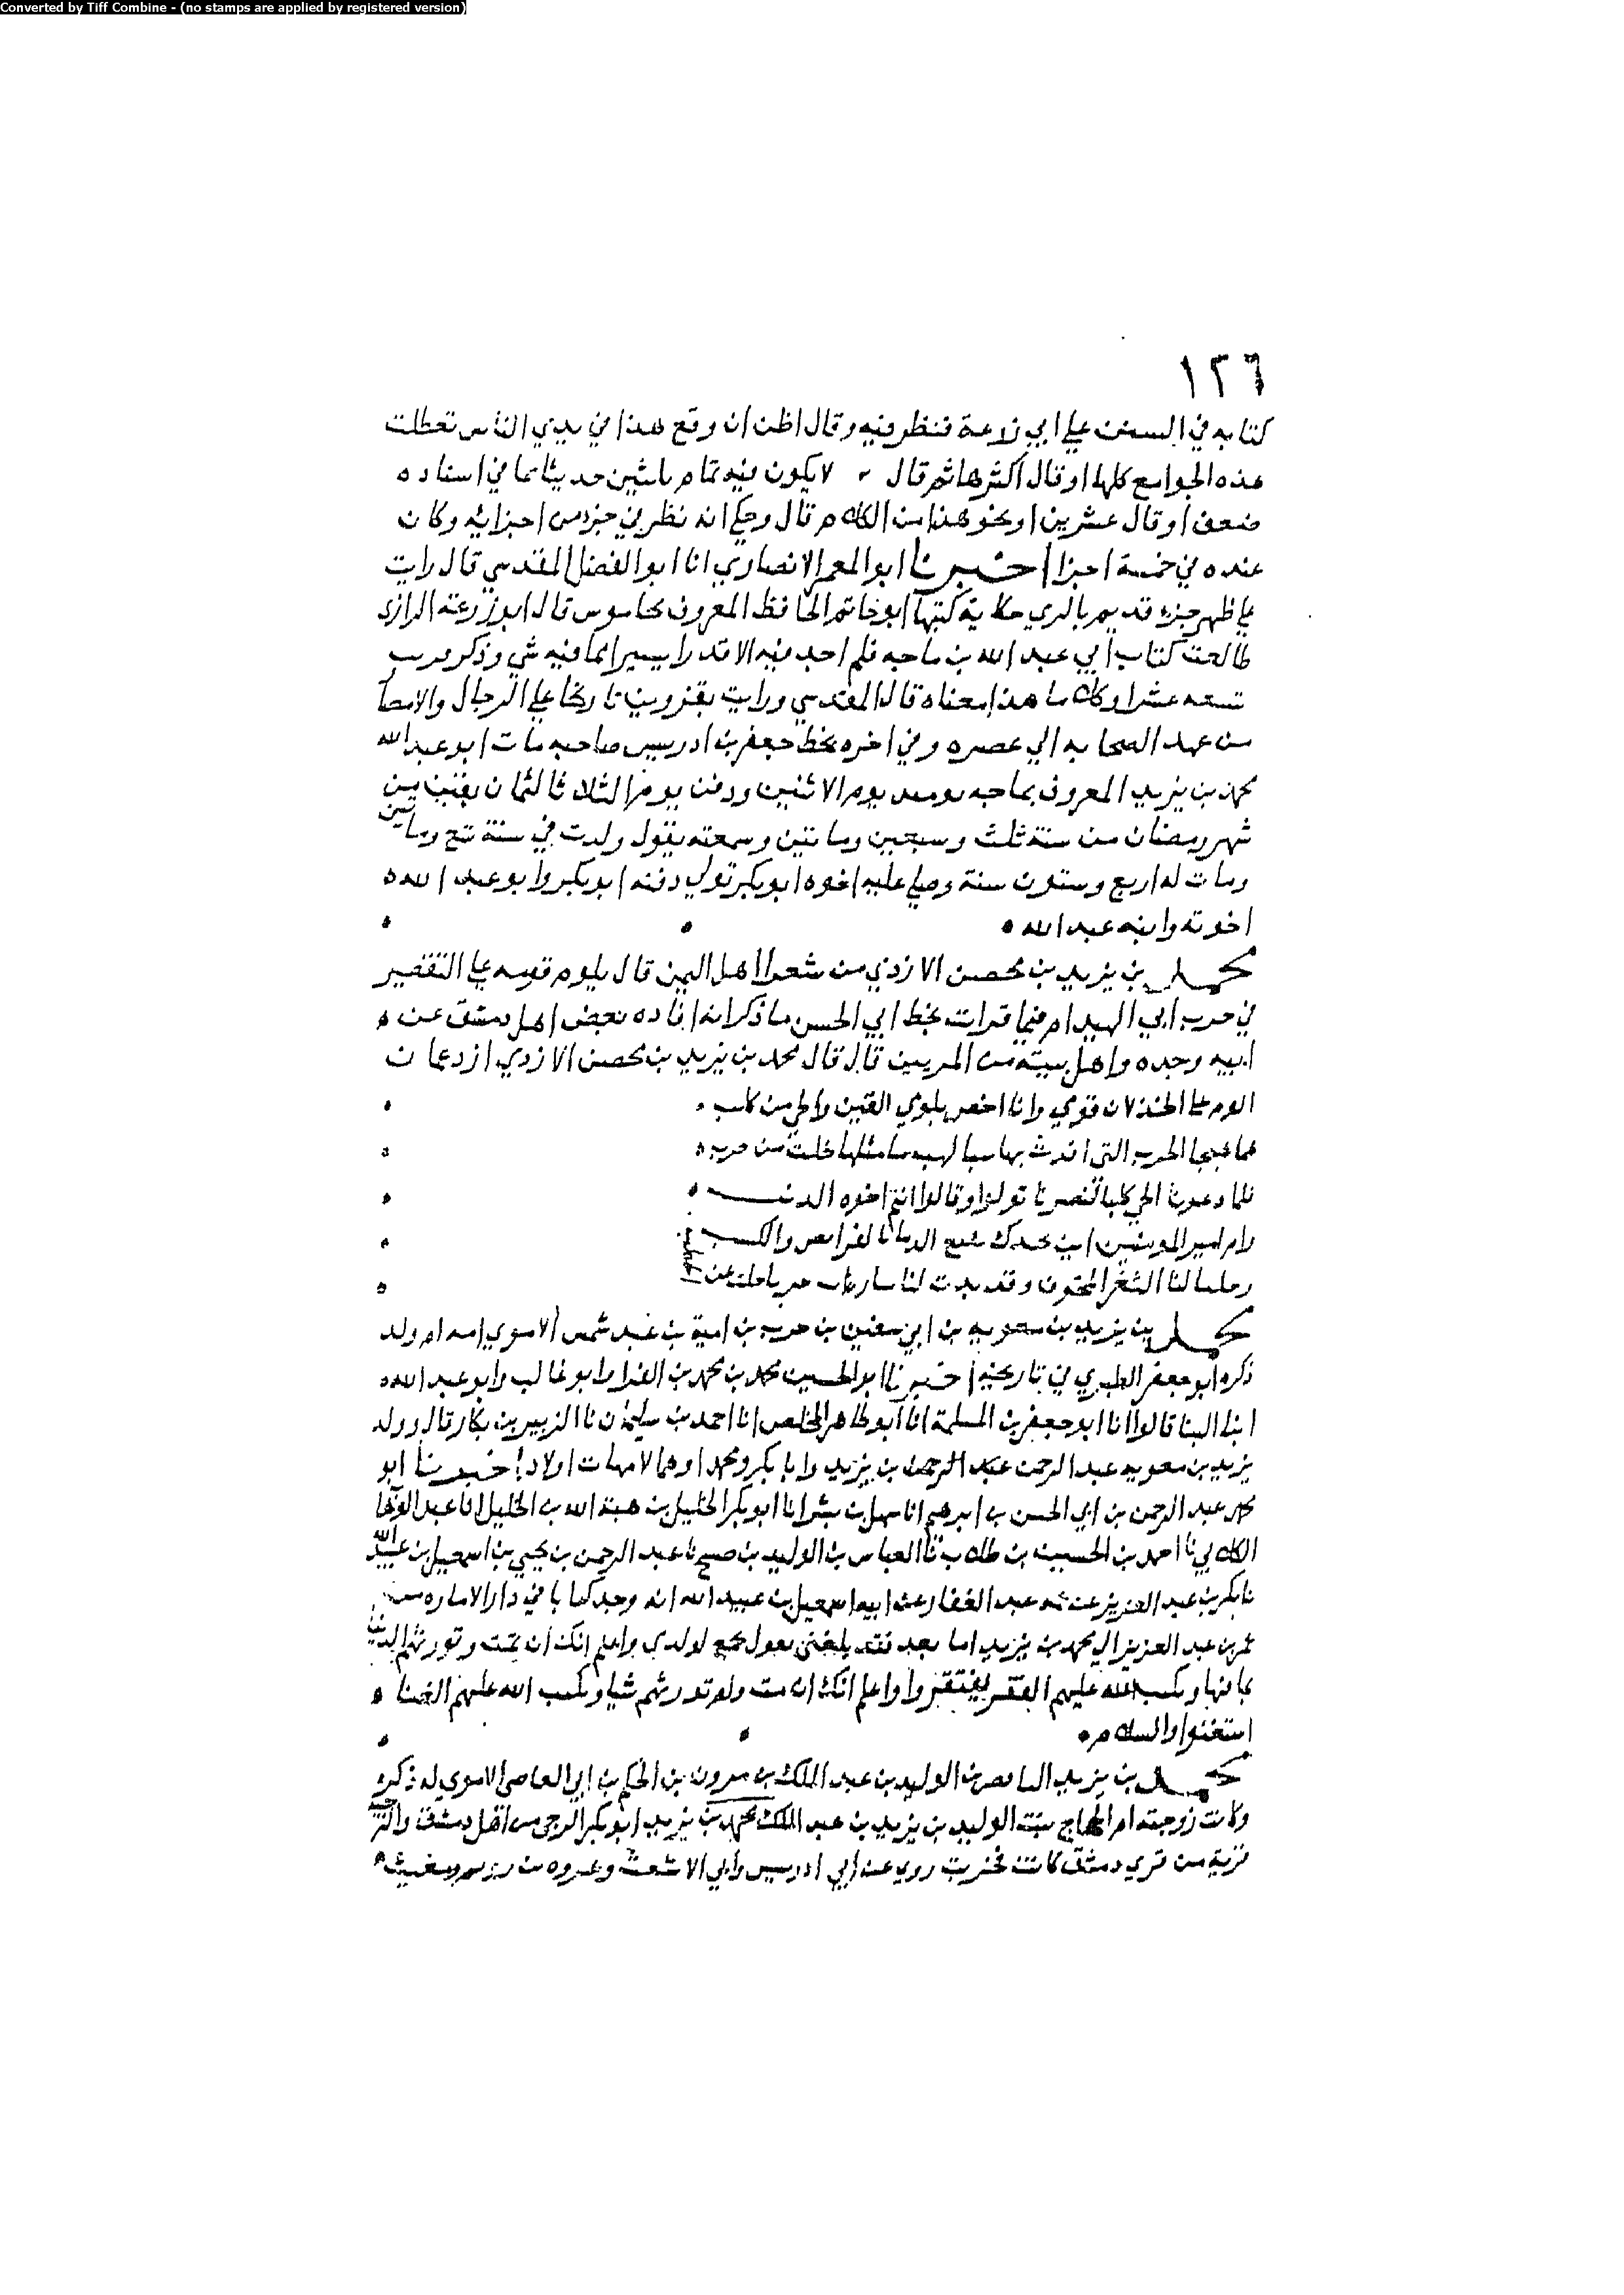 Converted by Tiff Combine - (no stamps are applied by registered version)
١٢٦
كتابه في السنن علي ابي زرعة فنظر فيه وقال اظن ان وقع هذا في يدي الناس تعطلت
هذه الجوامع كلها او قال اكثرها ثم قال لا يكون فيه تمام ثلثين حديثا مما في اسناده
ضعف او قال عشرين او نحو هذا من الكلام قال وحكي انه نظر في جزء من اجزائه وكان
عنده في خمسة اجزا اخبرنا ابو المعمر الانصاري انا ابو الفضل المقدسي قال رايت
علي ظهر جزء قديم بالري حكاية كتبها ابو حاتم الحافظ المعروف بخاموس قال ابو زرعة الرازي
طالعت كتاب ابي عبد الله بن ماجه فلم اجد فيه الا قدرا يسيرا مما فيه شي وذكر قريب
تسعه عشر او كلاما هذا معناه قال المقدسي ورايت بقزوين تاريخا علي الرجال والامصا
من عهد الصحابه الي عصره وفي اخره بخط جعفر بن ادريس صاحبه مات ابو عبد الله
محمد بن يزيد المعروف بماجه يوم الاثنين ودفن يوم الثلاثا لثمان بقين من
شهر رمضان من سنة ثلث وسبعين وماتين وسمعته يقول ولدت في سنة تسع وماتين
ومات له اربع وستون سنة وصلي عليه اخوه ابو بكر تولي دفنه ابو بكر وابو عبد الله
اخوته وابنه عبد الله
محمد بن يزيد بن محصن الازدي من شعرا اهل اليمن قال يلوم قومه علي التقصير
في حرب ابي الهيدام فيما قرات بخط ابي الحسن ما ذكر انه افاده بعض اهل دمشق عن
ابيه وجده واهل بيته من المريين قال قال محمد بن يزيد بن محصن الازدي ازد عمان
الوم علي الخذلان قومي وانا اخص بلومي القين والحي من كلب
هما هيجا الحرب التي
فلما دعونا الحي كلبا لنصرنا تولوا وقالوا انتم اخوه الدنب
لنا الثغر المخوف وقد بدت لنا
محمد بن يزيد بن معويه بن ابي سفين بن حرب بن امية بن عبد شمس الاموي امه ام ولد
ذكره ابو جعفر الطبري في تاريخه اخبرنا ابو الحسين محمد بن محمد بن الفرا وابو غالب وابو عبد الله
ابنا البنا قالوا انا ابو جعفر بن المسلمة انا ابو طاهر المخلص انا احمد بن سليمان نا الزبير بن بكار قال وولد
يزيد بن معويه عبد الرحمن عبد الرحمن بن يزيد وابا بكر ومحمدا وهما لامهات اولاد اخبرنا ابو
محمد عبد الرحمن بن ابي الحسن بن ابرهيم انا سهل بن بشر انا ابو بكر الخليل بن هبة الله بن الخليل انا عبد الوهاب
الكلابي نا احمد بن الحسين بن طلاب نا العباس بن الوليد بن صبح نا عبد الرحمن بن يحيي بن اسمعيل بن عبيد الله
نا بكر بن عبد العزيز عن عمه عبد الغفار عن ابيه اسمعيل بن عبيد الله انه وجد كتابا في دار الاماره من
عمر بن عبد العزيز الي محمد بن يزيد اما بعد فقد بلغني تجمع لولدي واعلم انك ان تمت وتورثهم الدنيا
بما فيها ويكتب الله عليهم الفقر يفتقروا واعلم انك ان مت ولم تورثهم شيا ويكتب الله عليهم الغنا
استغنوا والسلام
محمد بن يزيد الناقص بن الوليد بن عبد الملك بن مرون بن الحكم بن ابي العاصي الاموي له ذكر
وكانت زوجته ام الحجاج بنت الوليد بن يزيد بن عبد الملك محمد بن يزيد ابو بكر الرحبي من اهل دمشق والرحبه
قرية من قري دمشق كانت فخربت روي عن ابي ادريس وابي الاشعث وعروه بن رويم ومغيث